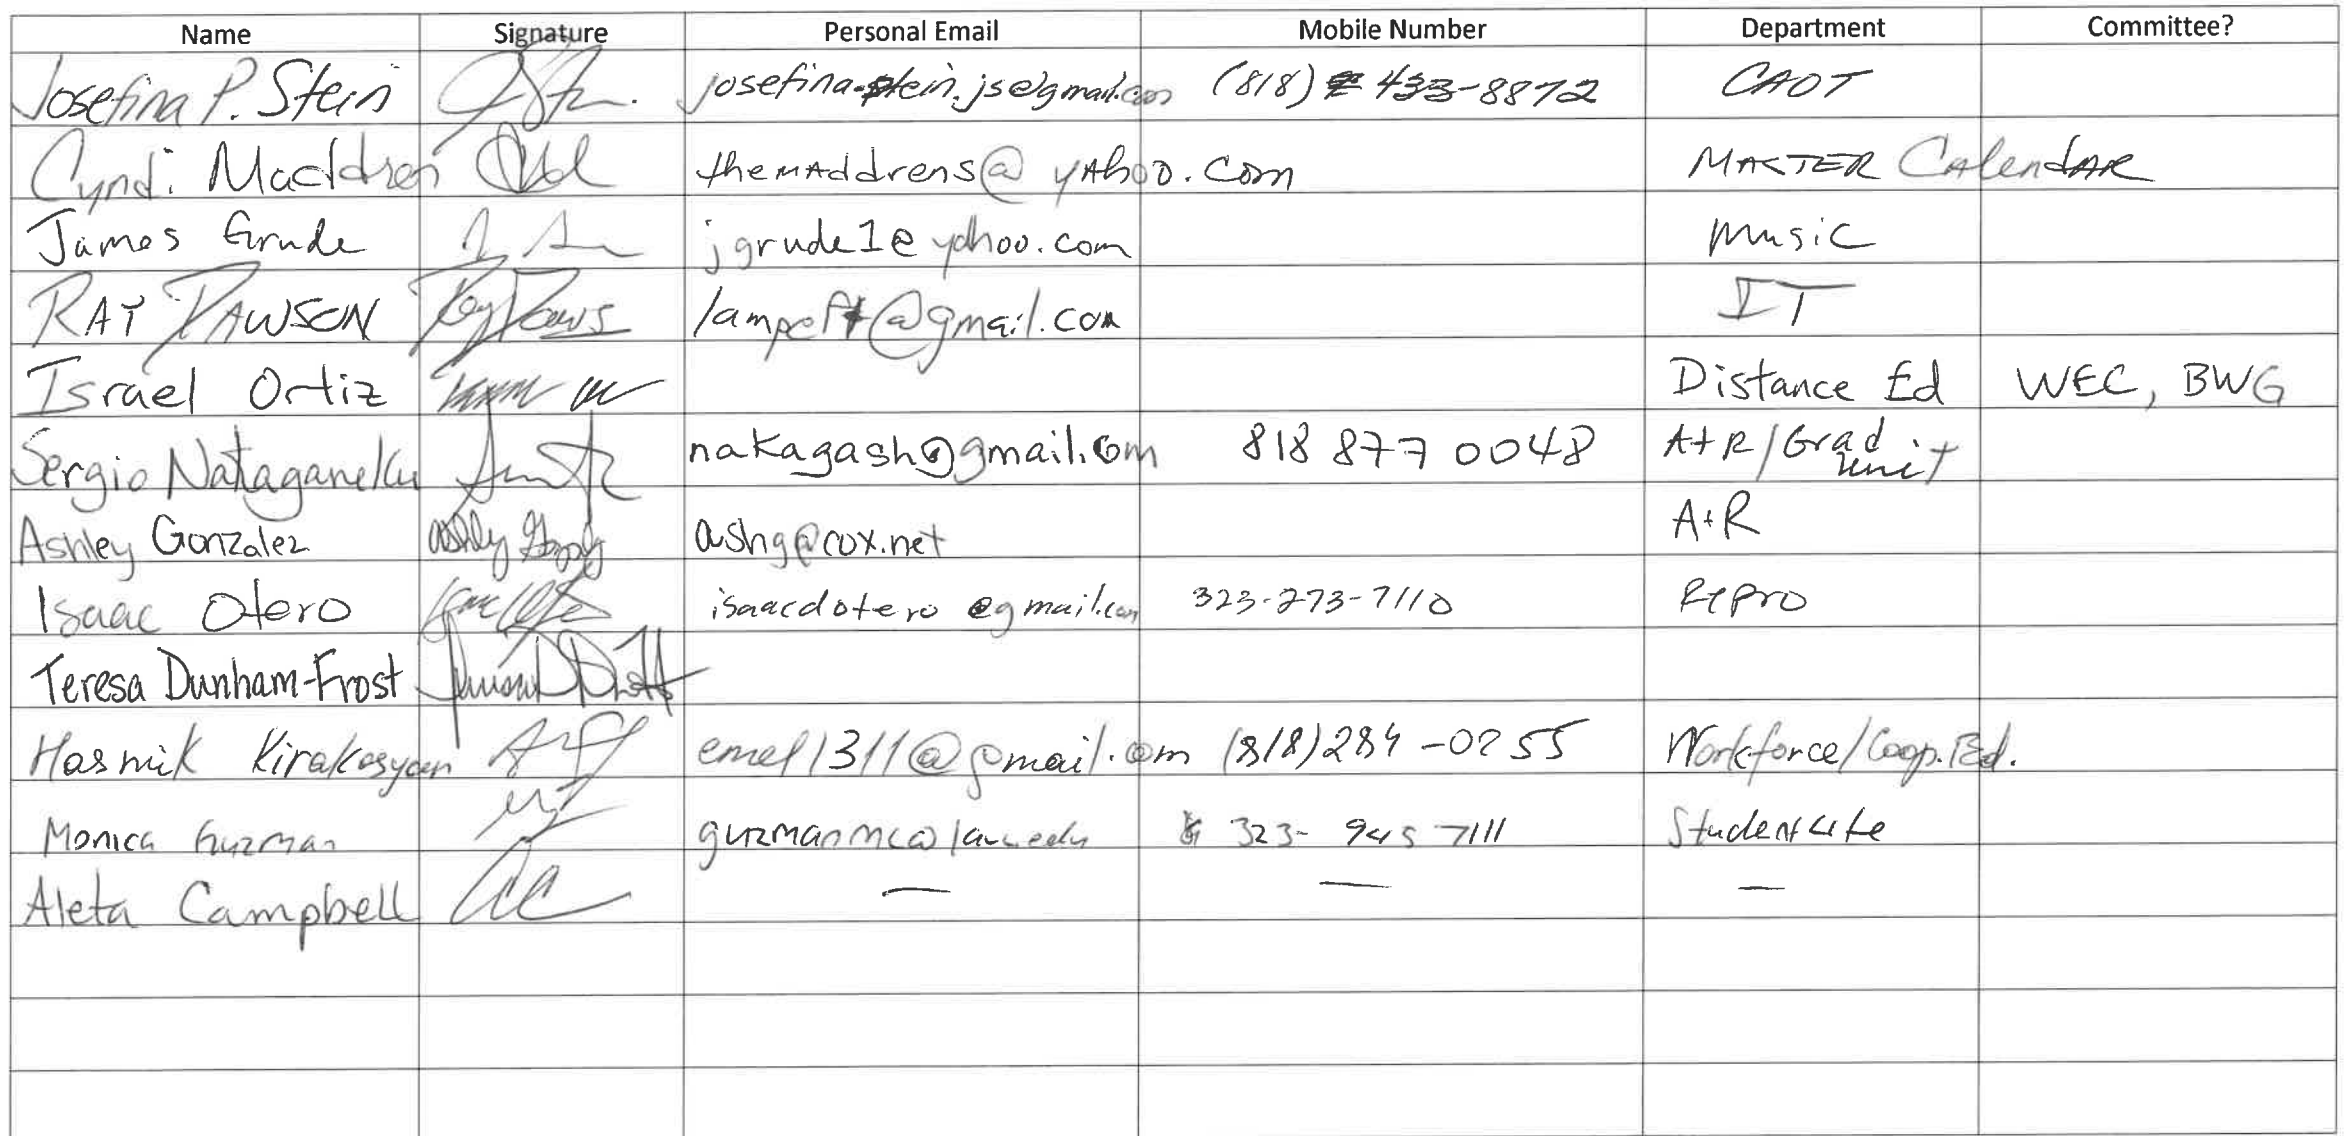 Name Signature Personal Email Mobile Number Department Committee?
Josefina P. Stein josefina.stein.js@gmail.com (818) 433-8872 CAOT
Cyndi Maddren theMAddrens@yAhoo.com MASTER CAlenDAR
James Grude jgrude1@yahoo.com Music
RAY DAWSON lampeft@gmail.com IT
Israel Ortiz Distance Ed WEC, BWG
Sergio nakagash@gmail.com 818 877 0048 A+R/Grad unit
Ashley Gonzalez ashg@cox.net A+R
Isaac Otero isaacdotero@gmail.com 323-273-7110 Repro
Teresa Dunham-Frost
Hasmik Kirakosyan emel1311@gmail.com (818)284-0255 Workforce/Coop.Ed.
Monica Guzman 323-945 7111 Student Life
Aleta Campbell — — —